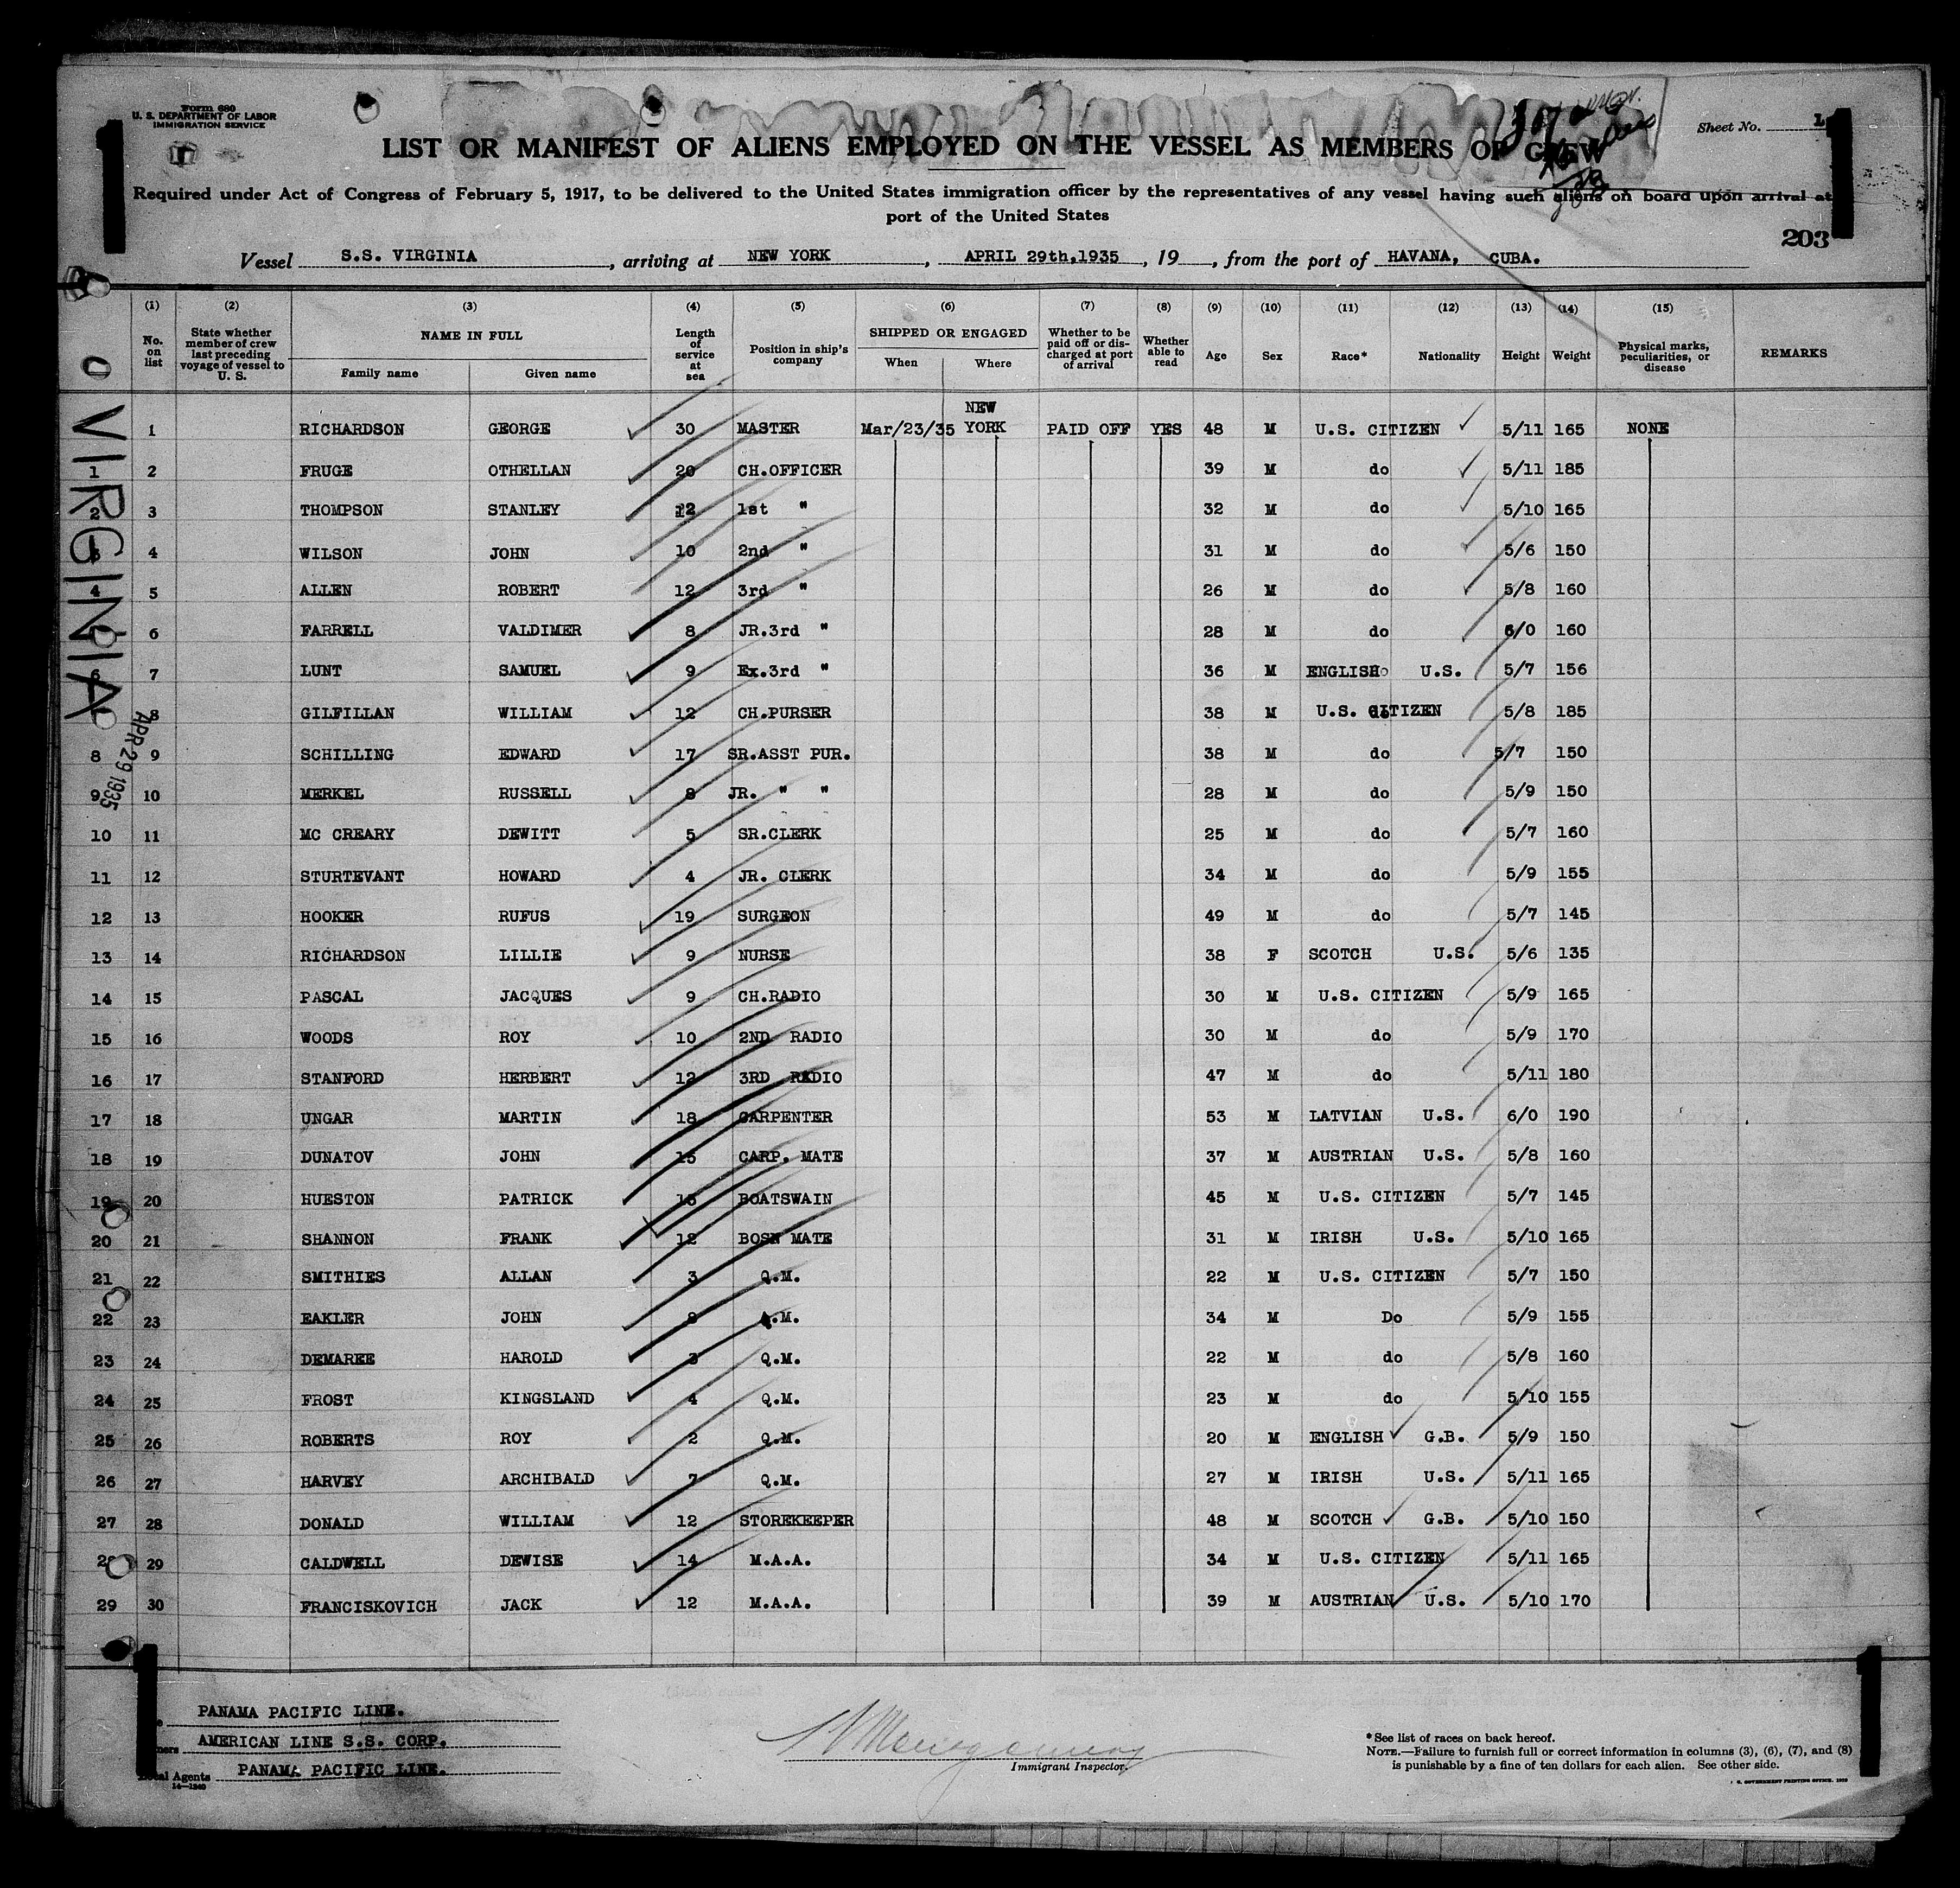 Form 680
U. S. DEPARTMENT OF LABOR
IMMIGRATION SERVICE
Sheet No. 1
LIST OR MANIFEST OF ALIENS EMPLOYED ON THE VESSEL AS MEMBERS OF CREW
Required under Act of Congress of February 5, 1917, to be delivered to the United States immigration officer by the representatives of any vessel having such aliens on board upon arrival at
port of the United States
203
Vessel S.S. VIRGINIA, arriving at NEW YORK, APRIL 29th,1935, 19, from the port of HAVANA, CUBA.
(1) (2) (3) (4) (5) (6) (7) (8) (9) (10) (11) (12) (13) (14) (15)
No. on list | State whether member of crew last preceding voyage of vessel to U. S. | NAME IN FULL Family name Given name | Length of service at sea | Position in ship's company | SHIPPED OR ENGAGED When Where | Whether to be paid off or discharged at port of arrival | Whether able to read | Age | Sex | Race* | Nationality | Height | Weight | Physical marks, peculiarities, or disease | REMARKS
VIRGINIA
APR 29 1935
1 RICHARDSON GEORGE 30 MASTER Mar/23/35 NEW YORK PAID OFF YES 48 M U.S. CITIZEN 5/11 165 NONE
1 2 FRUGE OTHELLAN 20 CH.OFFICER 39 M do 5/11 185
2 3 THOMPSON STANLEY 12 1st " 32 M do 5/10 165
3 4 WILSON JOHN 10 2nd " 31 M do 5/6 150
4 5 ALLEN ROBERT 12 3rd " 26 M do 5/8 160
6 FARRELL VALDIMER 8 JR.3rd " 28 M do 6/0 160
6 7 LUNT SAMUEL 9 Ex.3rd " 36 M ENGLISH U.S. 5/7 156
8 GILFILLAN WILLIAM 12 CH.PURSER 38 M U.S. CITIZEN 5/8 185
8 9 SCHILLING EDWARD 17 SR.ASST PUR. 38 M do 5/7 150
9 10 MERKEL RUSSELL 8 JR. " " 28 M do 5/9 150
10 11 MC CREARY DEWITT 5 SR.CLERK 25 M do 5/7 160
11 12 STURTEVANT HOWARD 4 JR. CLERK 34 M do 5/9 155
12 13 HOOKER RUFUS 19 SURGEON 49 M do 5/7 145
13 14 RICHARDSON LILLIE 9 NURSE 38 F SCOTCH U.S. 5/6 135
14 15 PASCAL JACQUES 9 CH.RADIO 30 M U.S. CITIZEN 5/9 165
15 16 WOODS ROY 10 2ND RADIO 30 M do 5/9 170
16 17 STANFORD HERBERT 12 3RD RADIO 47 M do 5/11 180
17 18 UNGAR MARTIN 18 CARPENTER 53 M LATVIAN U.S. 6/0 190
18 19 DUNATOV JOHN 15 CARP. MATE 37 M AUSTRIAN U.S. 5/8 160
19 20 HUESTON PATRICK 15 BOATSWAIN 45 M U.S. CITIZEN 5/7 145
20 21 SHANNON FRANK 12 BOSN MATE 31 M IRISH U.S. 5/10 165
21 22 SMITHIES ALLAN 3 Q.M. 22 M U.S. CITIZEN 5/7 150
22 23 EAKLER JOHN 8 Q.M. 34 M Do 5/9 155
23 24 DEMAREE HAROLD 3 Q.M. 22 M do 5/8 160
24 25 FROST KINGSLAND 4 Q.M. 23 M do 5/10 155
25 26 ROBERTS ROY 2 Q.M. 20 M ENGLISH G.B. 5/9 150
26 27 HARVEY ARCHIBALD 7 Q.M. 27 M IRISH U.S. 5/11 165
27 28 DONALD WILLIAM 12 STOREKEEPER 48 M SCOTCH G.B. 5/10 150
28 29 CALDWELL DEWISE 14 M.A.A. 34 M U.S. CITIZEN 5/11 165
29 30 FRANCISKOVICH JACK 12 M.A.A. 39 M AUSTRIAN U.S. 5/10 170
PANAMA PACIFIC LINE.
AMERICAN LINE S.S. CORP.
Local Agents PANAMA PACIFIC LINE.
14—1240
Immigrant Inspector.
*See list of races on back hereof.
NOTE.—Failure to furnish full or correct information in columns (3), (6), (7), and (8)
is punishable by a fine of ten dollars for each alien. See other side.